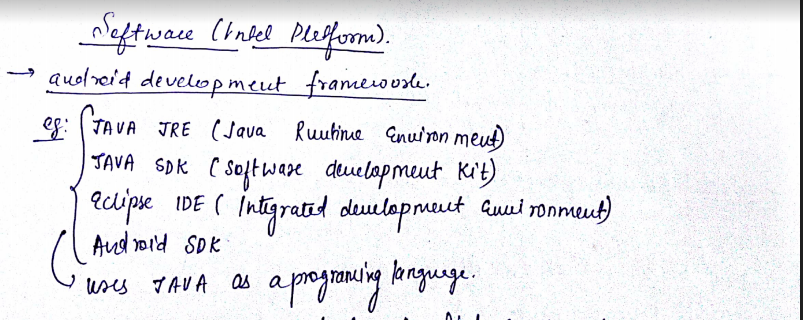 Software (Intel Platform).
→ android development framework.
eg: JAVA JRE (Java Runtime Environment)
JAVA SDK (Software development Kit)
eclipse IDE ( Integrated development Environment)
Android SDK
uses JAVA as a programing language.